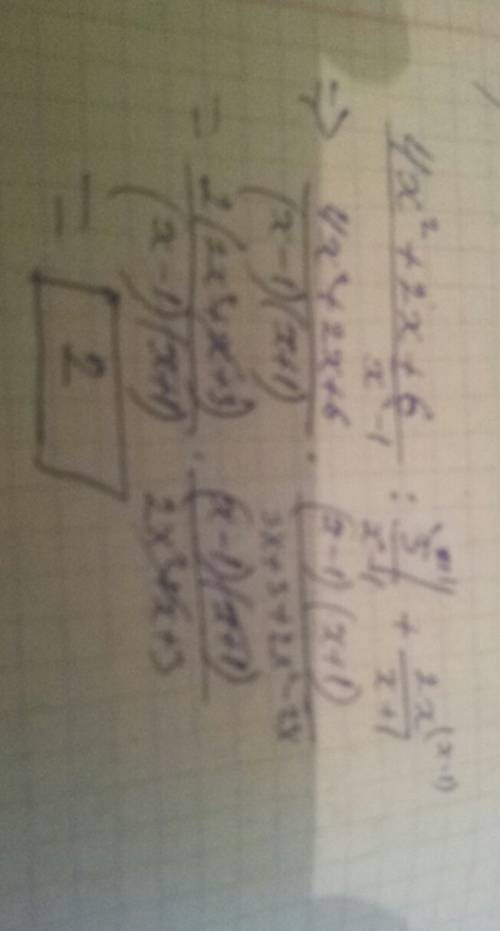 (4x² + 2x + 6)/(x² - 1) : 3/(x-1) + 2x/(x+1) (x-1)
=> (4x² + 2x + 6)/((x-1)(x+1)) · ((x-1)(x+1))/(3x+3+2x²-2x)
= 2(2x²+x+3)/((x-1)(x+1)) · ((x-1)(x+1))/(2x²+x+3)
= 2